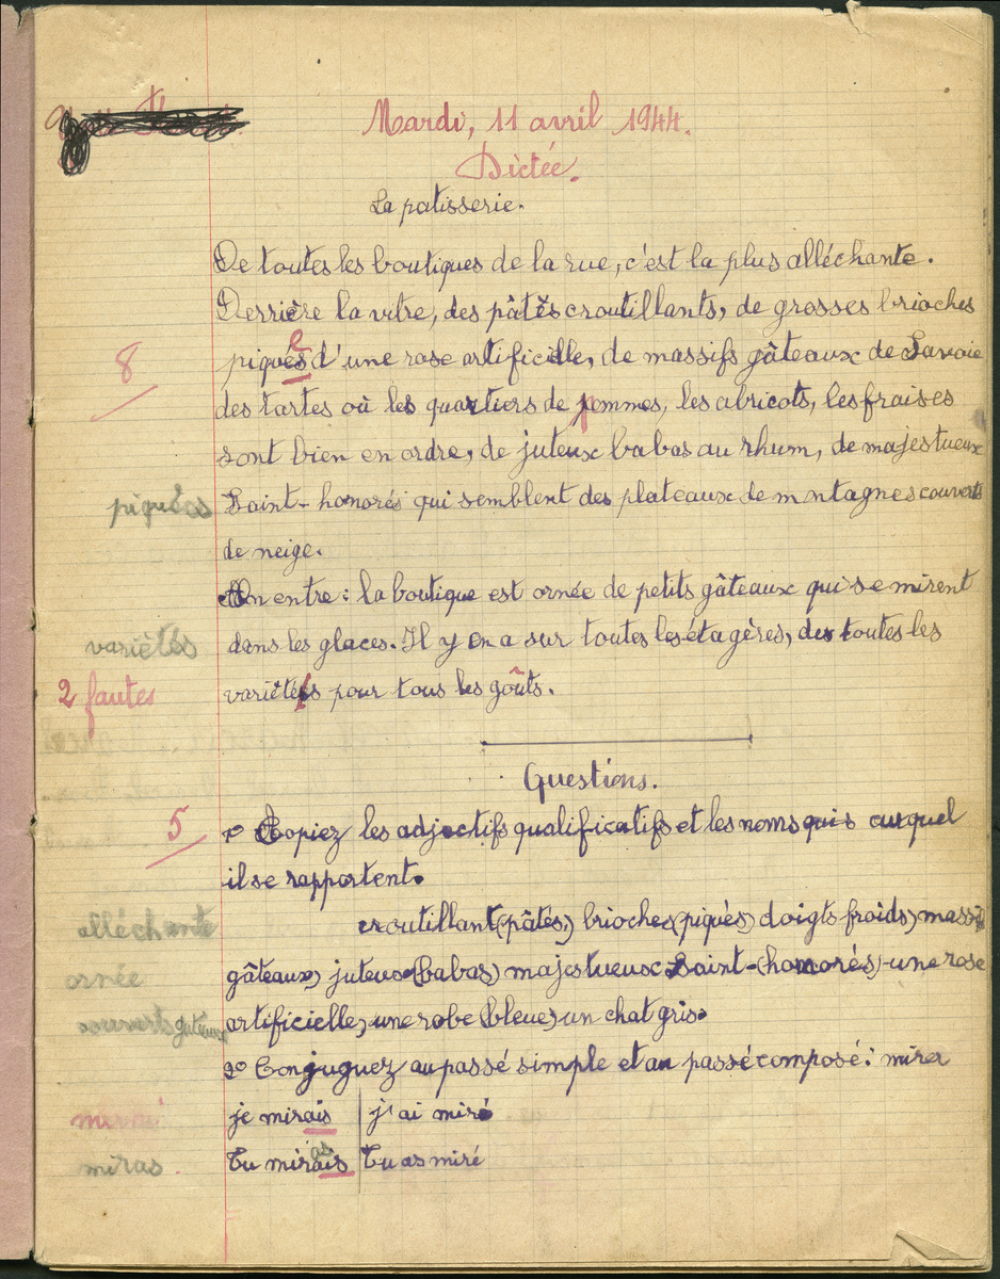 Mardi, 11 avril 1944.
Dictée.
La patisserie.
De toutes les boutiques de la rue, c'est la plus alléchante.
Derrière la vitre, des pâtés croutillants, de grosses brioches
8
piqués d'une rose artificielle, de massifs gâteaux de Savoie
des tartes où les quartiers de pommes, les abricots, les fraises
sont bien en ordre, de juteux babas au rhum, de majestueux
piquées
Saint-honorés qui semblent des plateaux de mntagnes couverts
de neige.
On entre : la boutique est ornée de petits gâteaux qui se mirent
variétés
dans les glaces. Il y en a sur toutes les étagères, de toutes les
2 fautes
variétés pour tous les goûts.
Questions.
5
1º Copiez les adjectifs qualificatifs et les noms auquel
il se rapportent.
alléchante
croutillant (pâtés,) brioches (piqués) doigts froids) massifs
ornée
gâteaux) juteux (babas) majestueux Saint-(honorés)-une rose
couverts gateaux
artificielle, une robe (bleue) un chat gris.
2º Conjuguez au passé simple et au passé composé : mirer
je mirais | j'ai miré
miras.
Tu mirais as | Tu as miré